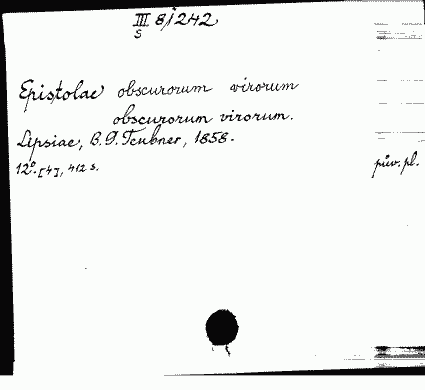 III 8/242
S
Epistolae obscurorum virorum
obscurorum virorum.
Lipsiae, B. G. Teubner, 1858.
12° [4], 412 s.
pův. pl.